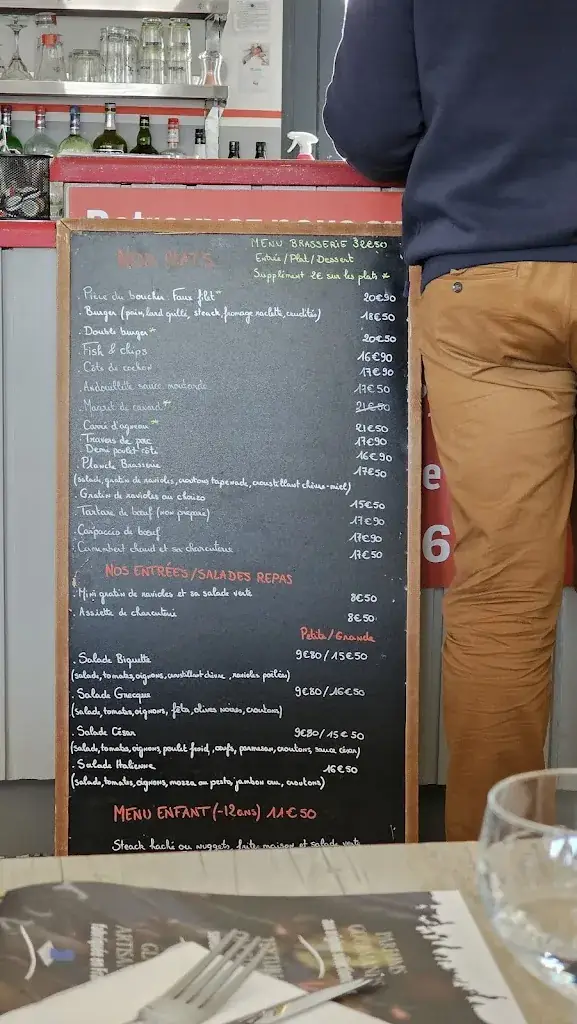 NOS PLATS
MENU BRASSERIE 32€50
Entrée/Plat/Dessert
Supplément 2€ sur les plats *
. Pièce du boucher Faux filet* 20€90
. Burger (pain, lard grillé, steack, fromage raclette, crudités) 18€50
. Double burger* 20€50
. Fish & chips 16€90
. Côte de cochon 17€90
. Andouillette sauce moutarde 17€50
. Magret de canard* 21€50
. Carré d'agneau* 21€50
. Travers de porc 17€90
. Demi poulet rôti 16€90
. Planche Brasserie 17€50
(salade, gratin de ravioles, croutons tapenade, croustillant chèvre-miel)
. Gratin de ravioles au chorizo 15€50
. Tartare de bœuf (non préparé) 17€90
. Carpaccio de bœuf 17€90
. Camembert chaud et sa charcuterie 17€50
NOS ENTRÉES/SALADES REPAS
. Mini gratin de ravioles et sa salade verte 8€50
. Assiette de charcuterie 8€50
Petite/Grande
. Salade Biquette 9€80/15€50
(salade, tomates, oignons, croustillant chèvre, ravioles poêlées)
. Salade Grecque 9€80/16€50
(salade, tomates, oignons, féta, olives noires, croutons)
. Salade César 9€80/15€50
(salade, tomates, oignons, poulet froid, œufs, parmesan, croutons, sauce césar)
. Salade Italienne 16€50
(salade, tomates, oignons, mozza au pesto, jambon cru, croutons)
MENU ENFANT (-12ans) 11€50
Steack haché ou nuggets, frites maison et salade verte